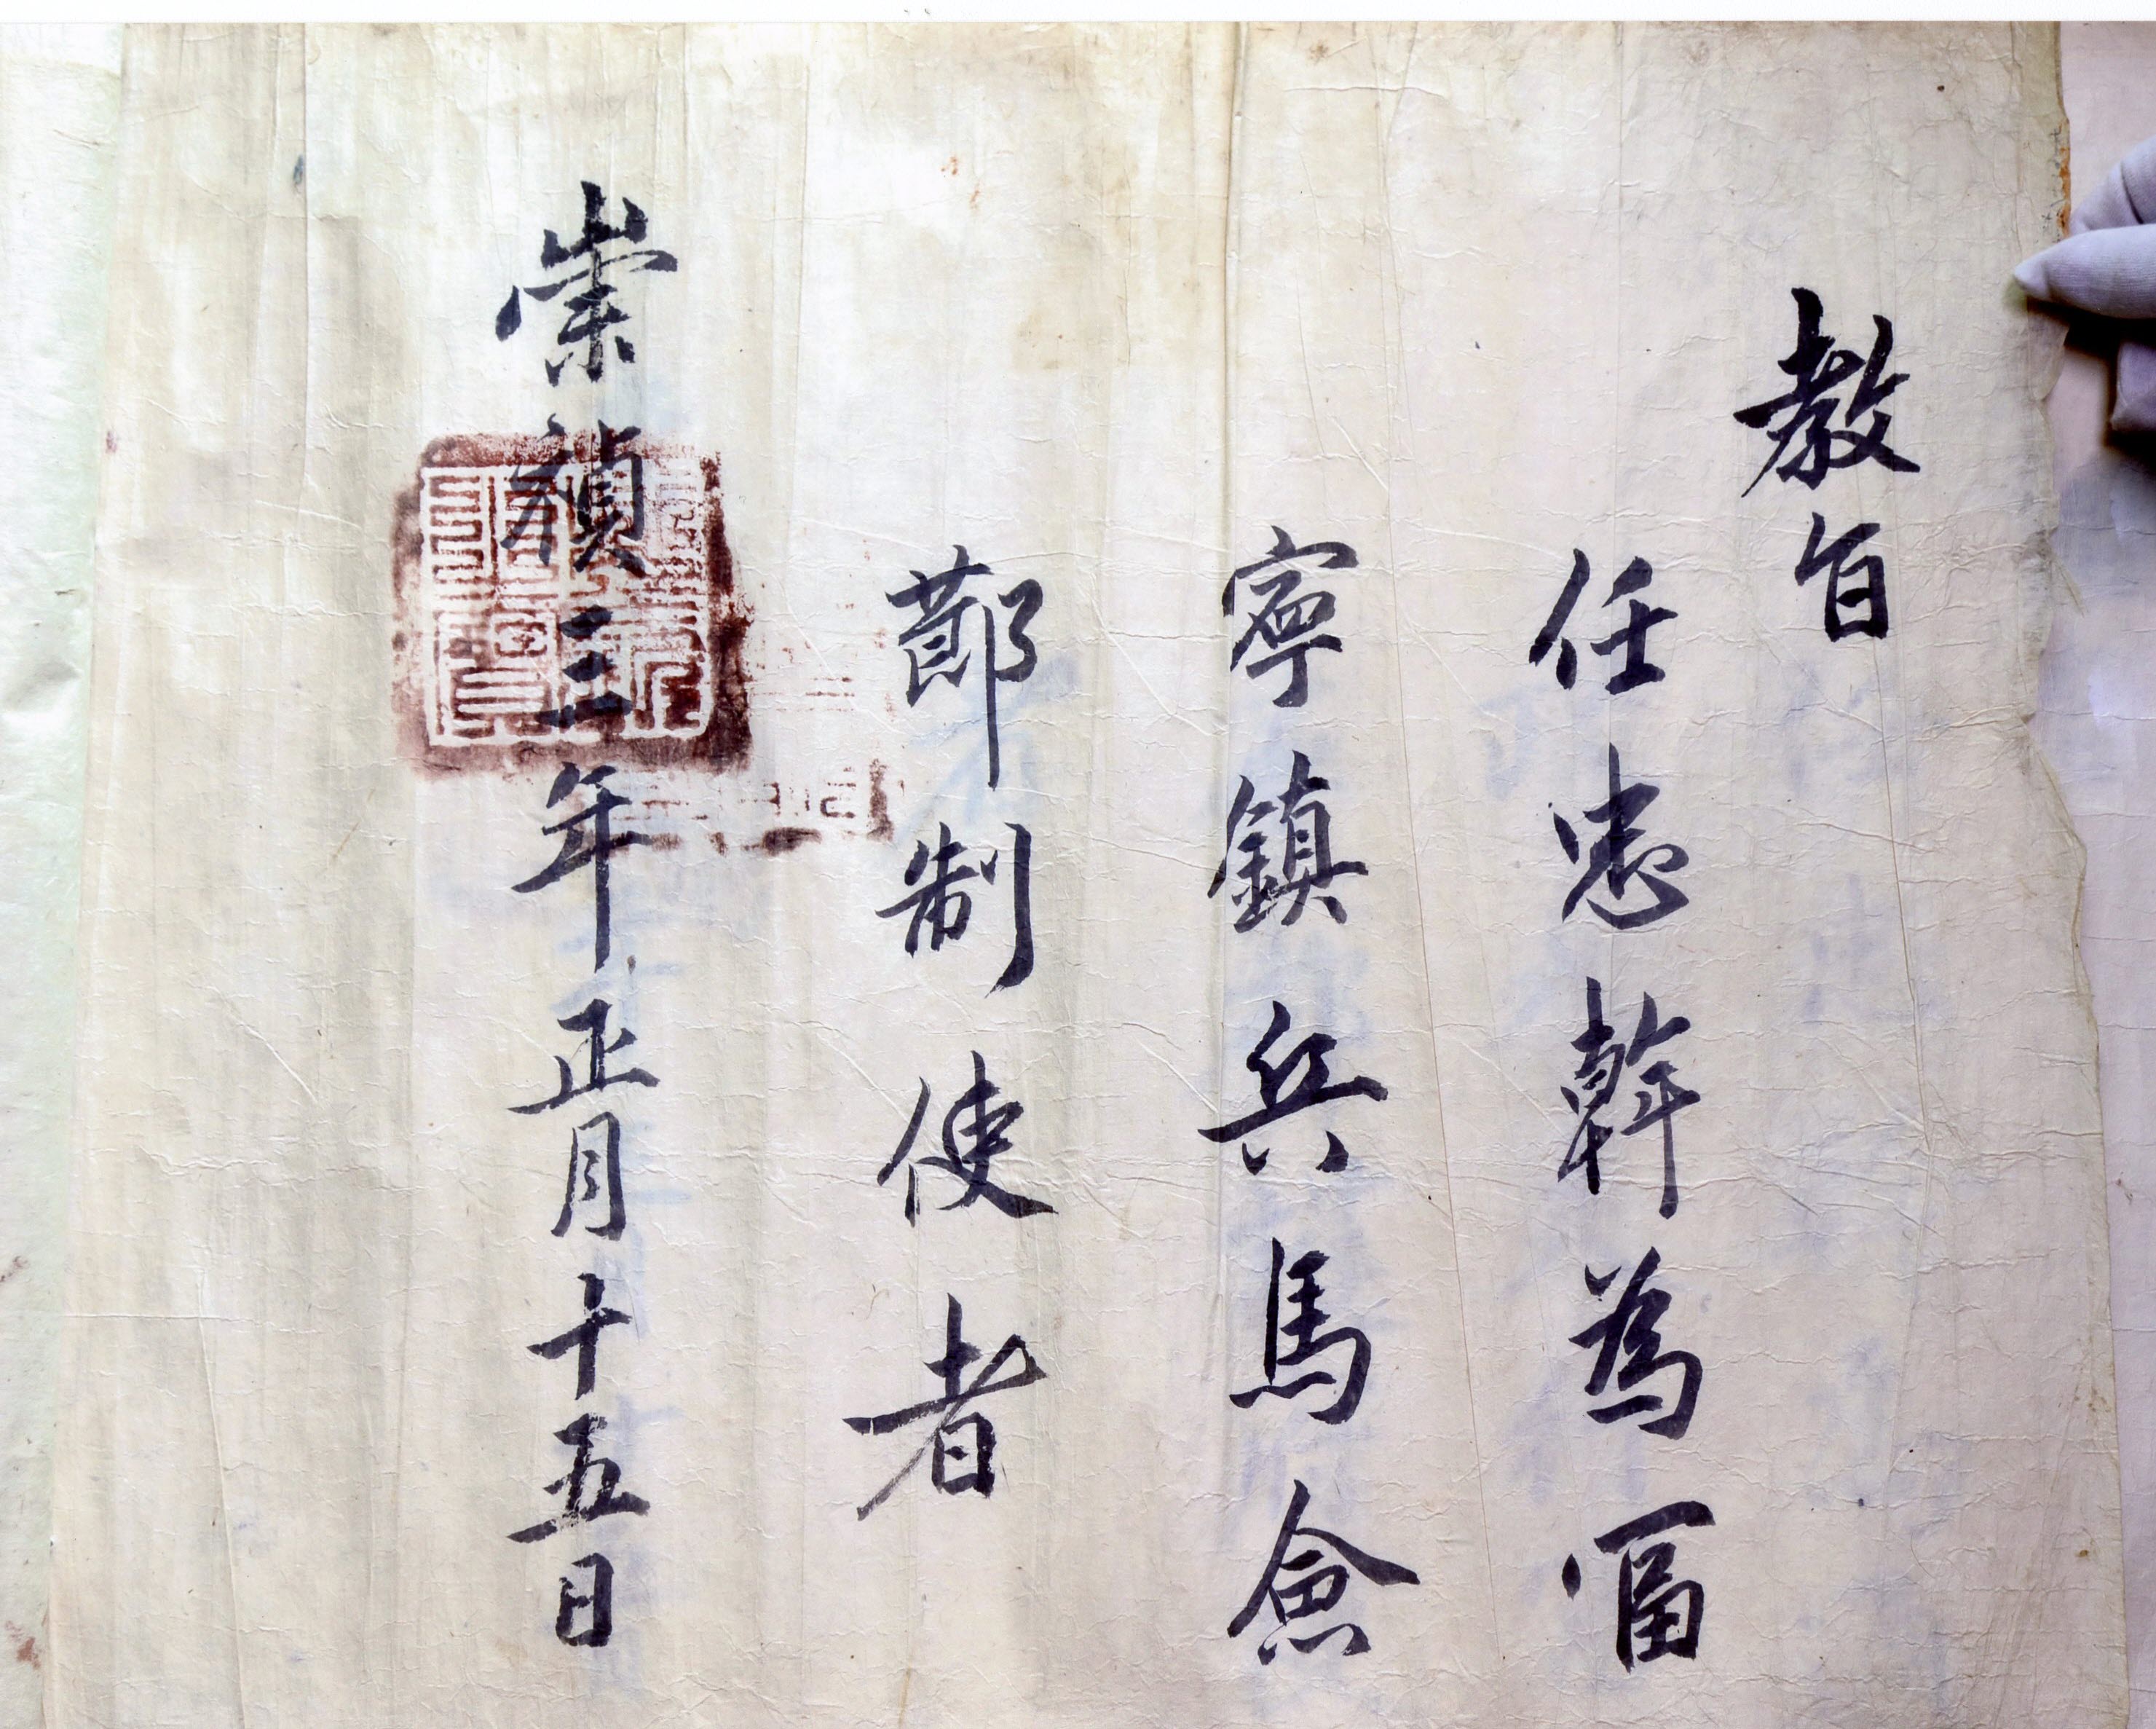 教旨
任忠幹為富
寧鎮兵馬僉
節制使者
崇禎三年正月十五日